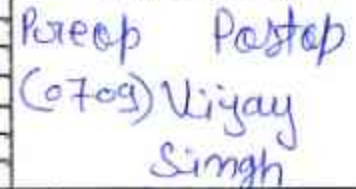 Preop Postop
(0709) Vijay
Singh